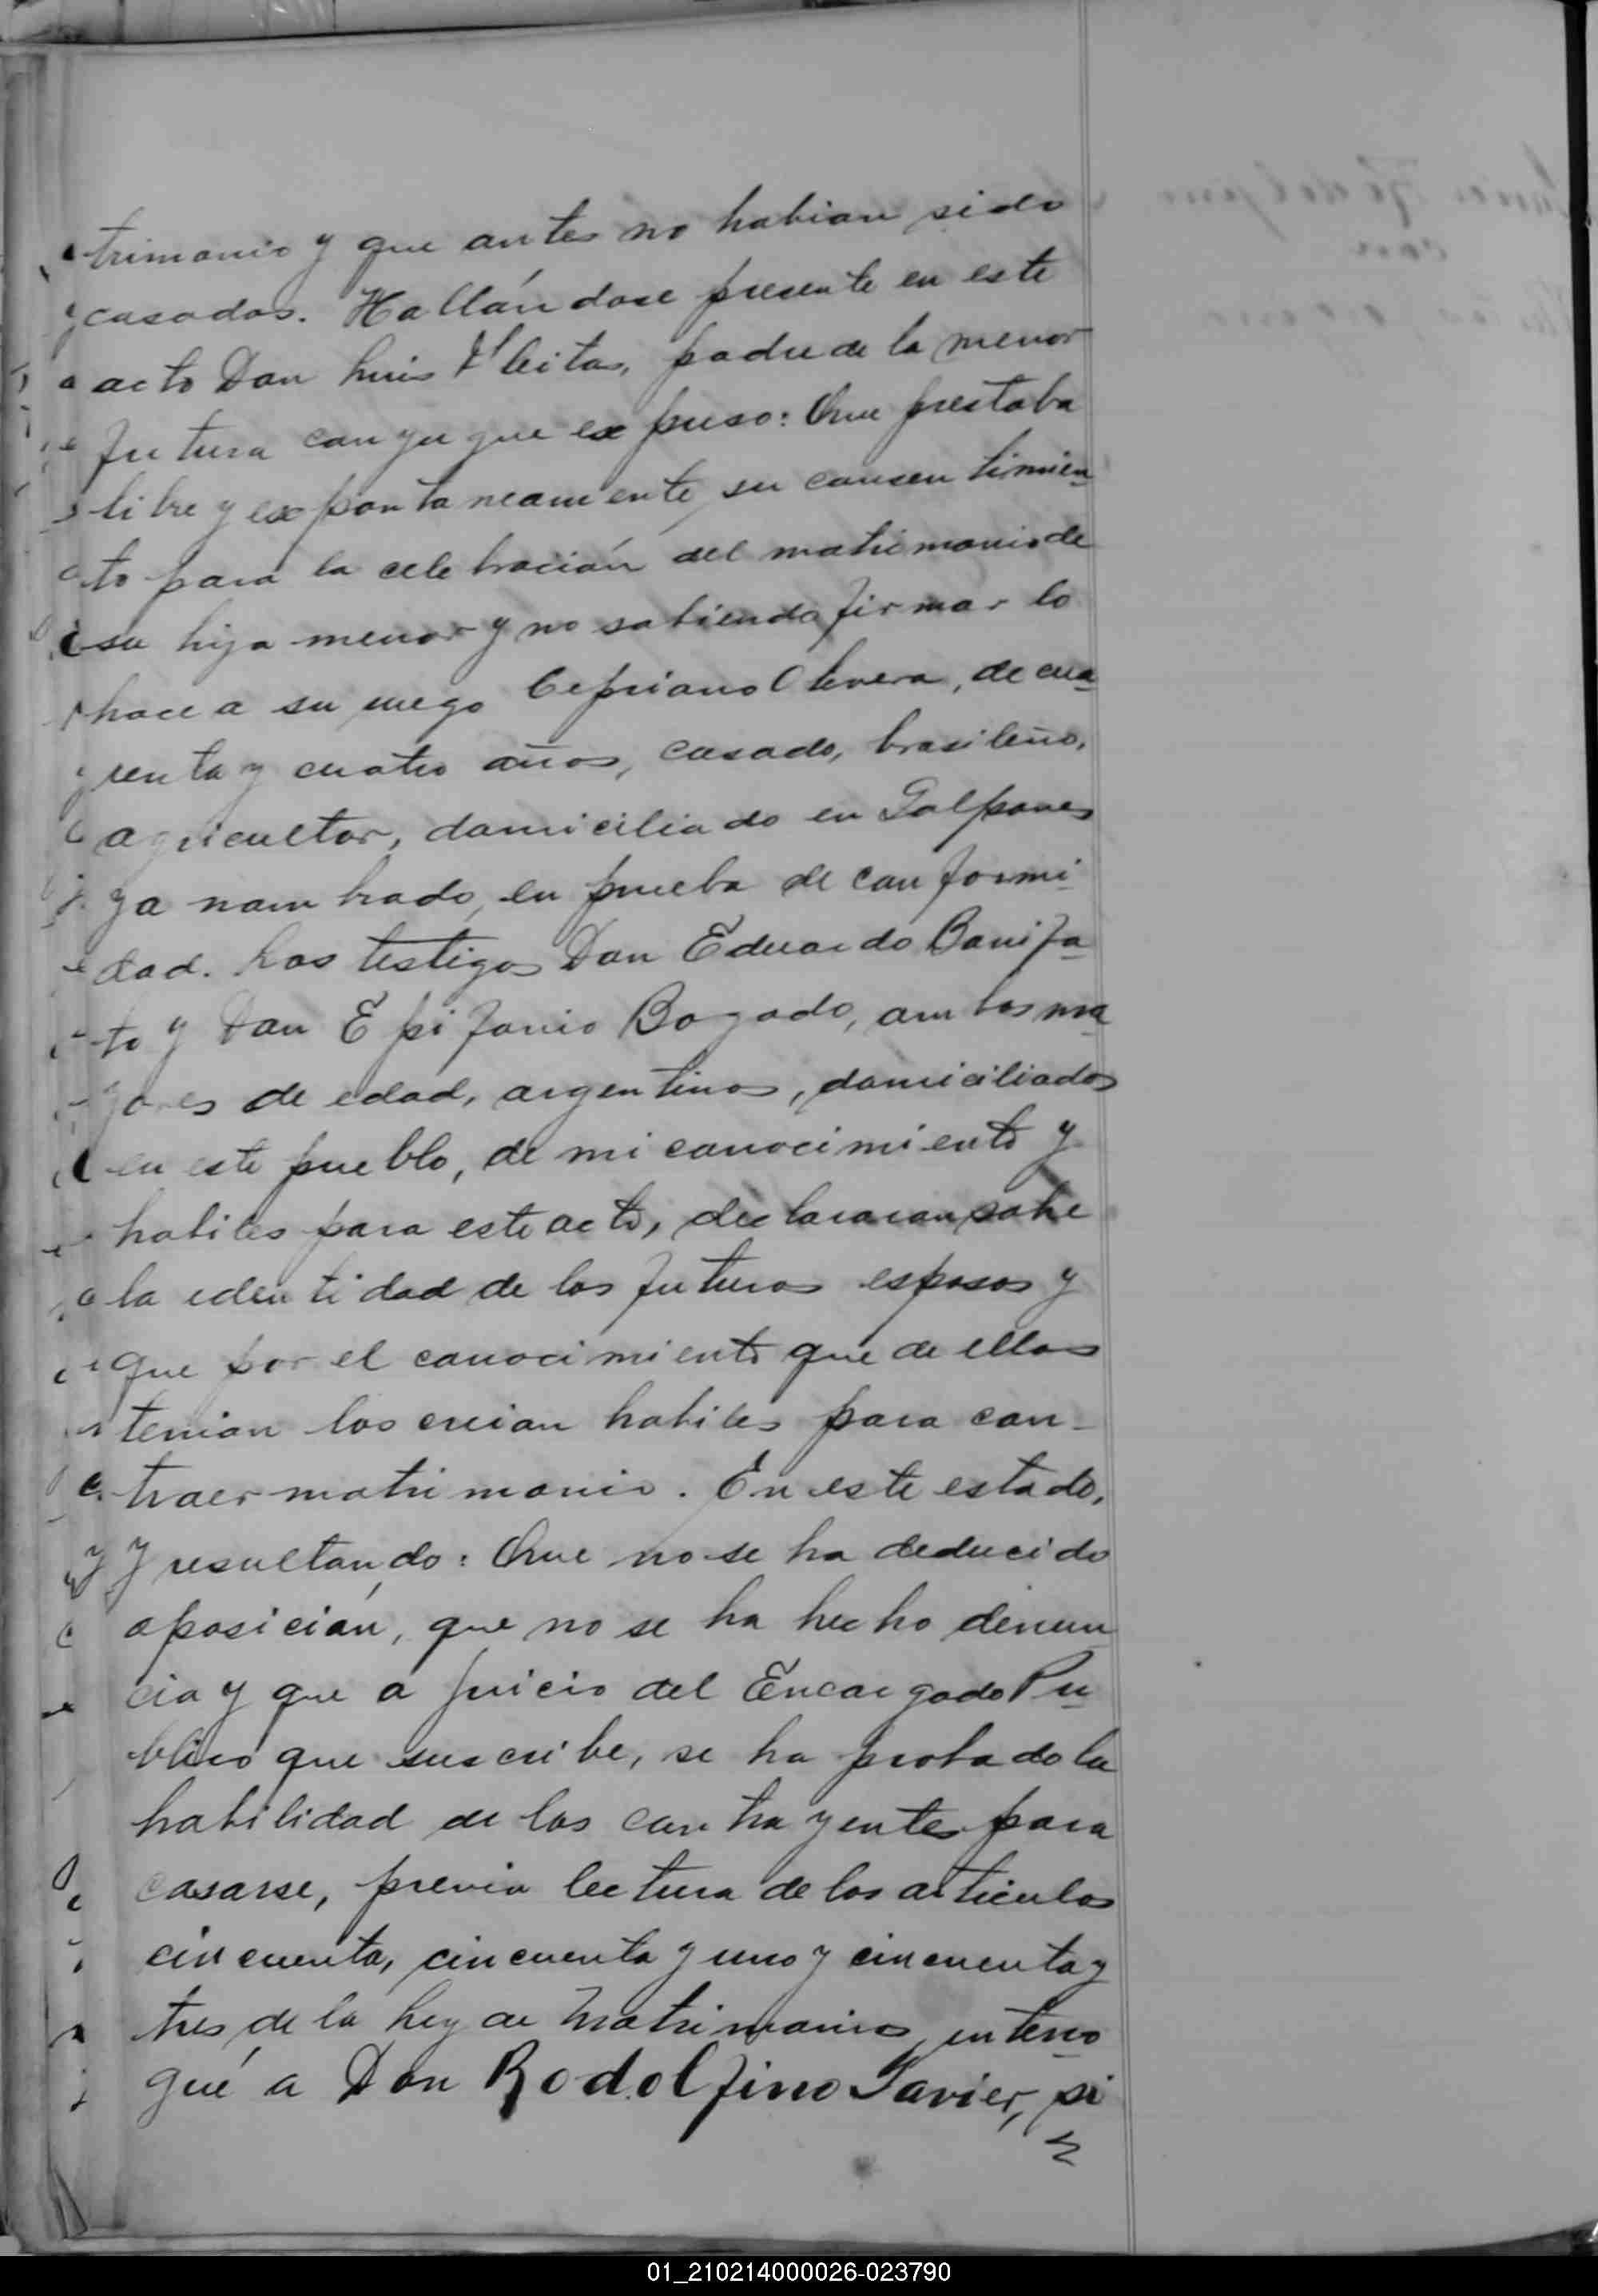 trimonio y que antes no habian sido
casados. Hallándose presente en este
acto Don Luis Fleitas, padre de la menor
futura conyugue expuso: Que prestaba
libre y expontaneamente, su consentimien
to para la celebración del matrimonio de
su hija menor y no sabiendo firmar lo
hace a su ruego Cepriano Olivera, de cua
renta y cuatro años, casado, brasileño,
agricultor, domiciliado en Galpones
ya nombrado, en prueba de conformi
dad. Los testigos Don Eduardo Bonifa
to y Don Epifanio Bogado, ambos ma
yores de edad, argentinos, domiciliados
en este pueblo, de mi conocimiento y
habiles para este acto, declararon sobre
la identidad de los futuros esposos y
que por el conocimiento que de ellos
tenian los creian habiles para con-
traer matrimonio. En este estado,
y resultando: Que no se ha deducido
oposición, que no se ha hecho denun
cia y que a juicio del Encargado Pu
blico que suscribe, se ha probado la
habilidad de los contrayentes para
casarse, previa lectura de los articulos
cincuenta, cincuenta y uno y cincuenta y
tres de la Ley de Matrimonios, interro
gué a Don Rodolfino Javier, si
01_210214000026-023790